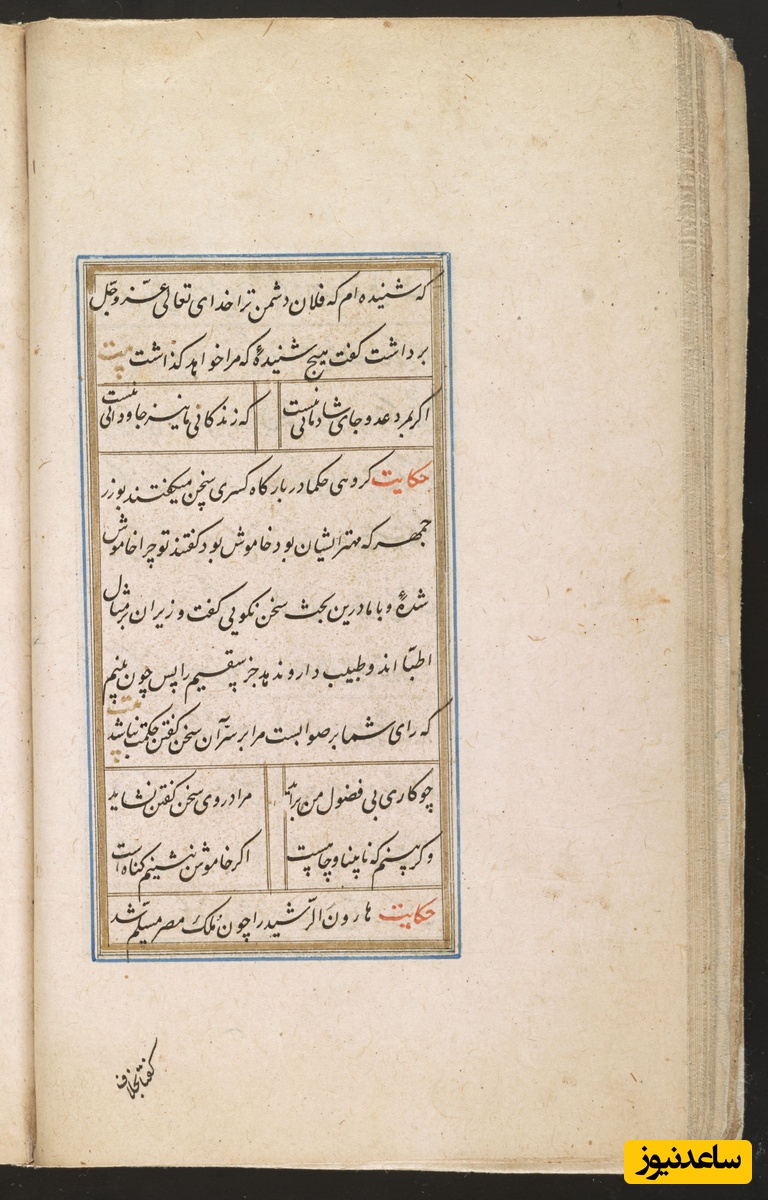 که شنیده ام که فلان دشمن ترا خدای تعالی عزّ و جّل
برداشت کفت هیچ شنیدهٔ که مرا خواهد کذاشت بیت
اکر بمرد عدو جای شادمانی نیست که زندکانی ما نیز جاودانی نیست
حکایت کروهی حکما در بارکاه کسری سخن میکفتند بوزر
جمهر که مهتر ایشان بود خاموش بود کفتند تو چرا خاموش
شدهٔ و با ما درین بحث سخن نکویی کفت وزیران بر مثال
اطبّا اند و طبیب دارو ندهد جز سقیم را پس چون بینم
که رای شما بر صوابست مرا بر سر آن سخن کفتن حکمت نباشد بیت
چو کاری بی فضول من براید مرا در وی سخن کفتن نشاید
وکر بینم که نابینا و چاهست اکر خاموش بنشینم کناه است
حکایت هارون الرّشید را چون ملک مصر مسلّم شد
کفتا بخلاف
ساعدنیوز